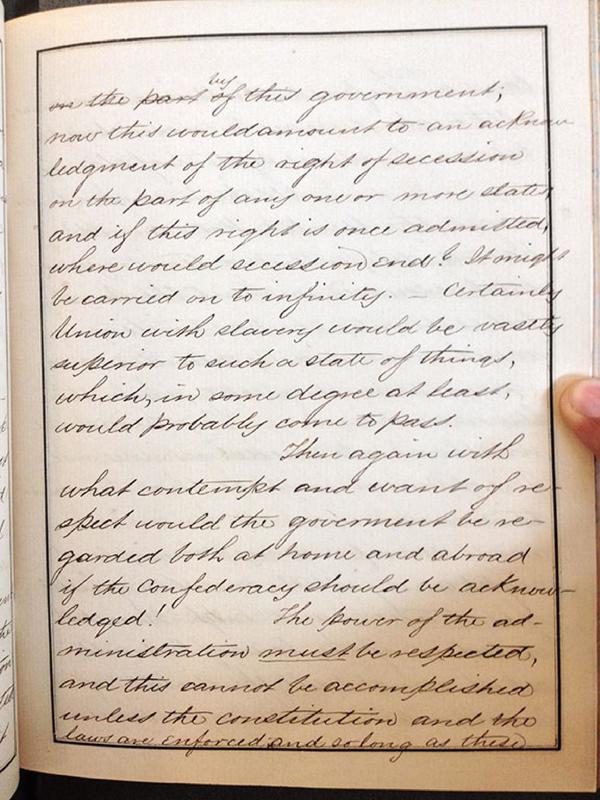 on the part by of this government;
now this would amount to an acknow
ledgment of the right of secession
on the part of any one or more states,
and if this right is once admitted,
where would secession end? It might
be carried on to infinity. — Certainly
Union with slavery would be vastly
superior to such a state of things,
which, in some degree at least,
would probably come to pass.
Then again with
what contempt and want of re-
spect would the goverment be re-
garded both at home and abroad
if the Confederacy should be acknow-
ledged! The power of the ad-
ministration must be respected,
and this cannot be accomplished
unless the constitution and the
laws are enforced, and so long as these